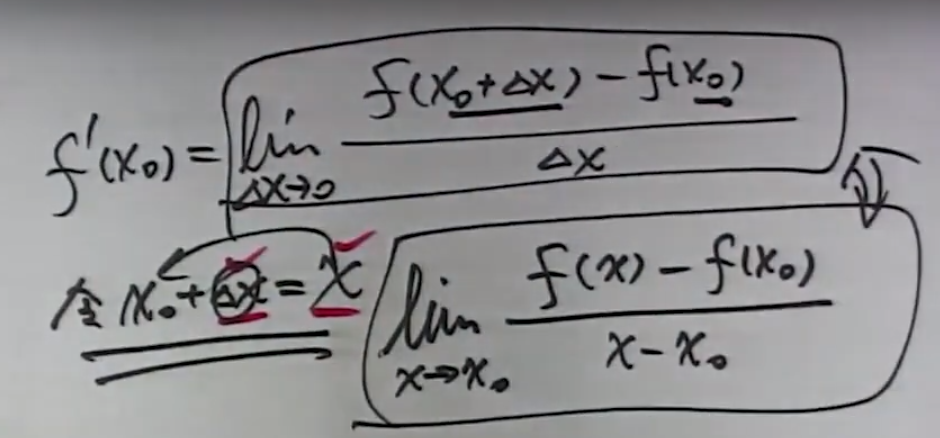 f'(x₀) = lim_{Δx→0} \frac{f(x₀+Δx) − f(x₀)}{Δx}
令 x₀+Δx = x lim_{x→x₀} \frac{f(x) − f(x₀)}{x − x₀}